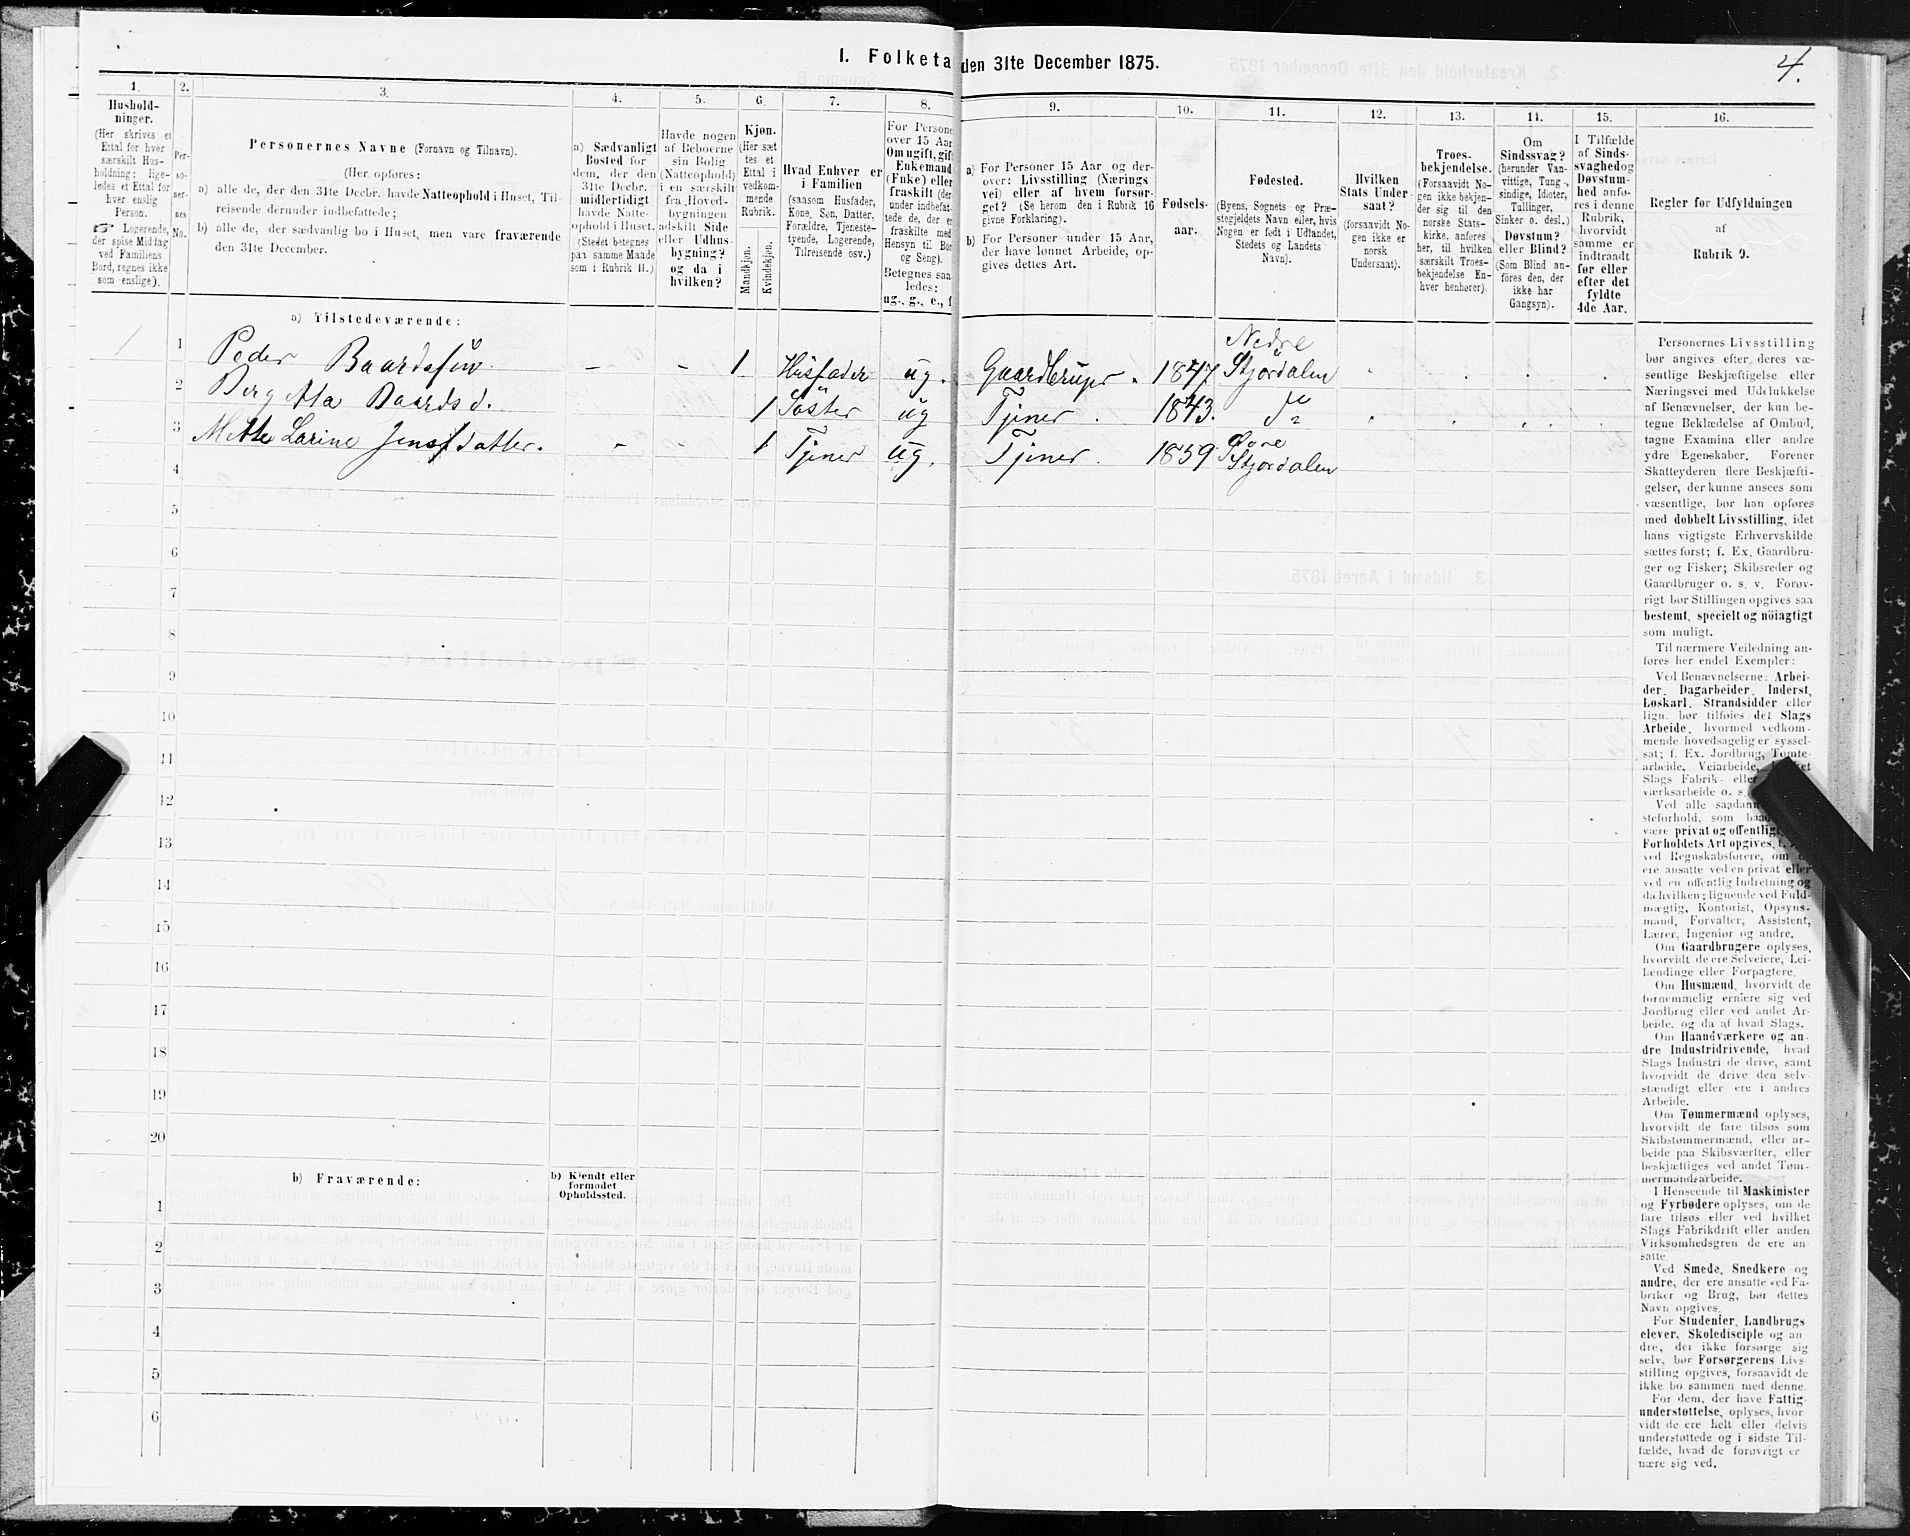 I. Folketa den 31te December 1875.
4.
1.
Hushold-
ninger.
(Her skrives et
Ettal for hver
særskilt Hus-
holdning; lige-
ledes et Ettal for
hver enslig
Person.
☞ Logerende,
der spise Middag
ved Familiens
Bord, regnes ikke
som enslige).
2.
Per-
so-
ner-
nes
No.
3.
Personernes Navne (Fornavn og Tilnavn).
(Her opføres:
a) alle de, der den 31te Decbr. havde Natteophold i Huset, Til-
reisende derunder indbefattede;
b) alle de, der sædvanlig bo i Huset, men vare fraværende
den 31te December.
4.
a) Sædvanligt
Bosted for
dem, der den
31te Decbr.
midlertidigt
havde Natte-
ophold i Huset.
(Stedet betegnes
paa samme Maade
som i Rubrik 11.)
5.
Havde nogen
af Beboerne
sin Bolig
(Natteophold)
i en særskilt
fra Hoved-
bygningen
adskilt Side
eller Udhus-
bygning?
og da i
hvilken?
6.
Kjøn.
(Her sæt
tes et
Ettal i
vedkom-
mende
Rubrik.
Mandkjøn.
Kvindekjøn.
7.
Hvad Enhver er
i Familien
(saasom Husfader,
Kone, Søn, Datter,
Forældre, Tjeneste-
tyende, Logerende,
Tilreisende osv.)
8.
For Persone
over 15 Aar
Om ugift, gift
Enkemand
(Enke) eller
fraskilt (der-
under indbefat-
tede de, der er
fraskilte med
Hensyn til Bor
og Seng).
Betegnes saa
ledes:
ug., g., e., f
9.
a) For Personer 15 Aar og der-
over: Livsstilling (Nærings
vei) eller af hvem forsør-
get? (Se herom den i Rubrik 16
givne Forklaring).
b) For Personer under 15 Aar,
der have lønnet Arbeide, op-
gives dettes Art.
10.
Fødsels-
aar.
11.
Fødested.
(Byens, Sognets og Præ-
stegjeldets Navn eller, hvis
Nogen er født i Udlandet,
Stedets og Landets
Navn).
12.
Hvilken
Stats Under-
saat?
(forsaavidt No-
gen ikke er
norsk
Undersaat).
13.
Troes-
bekjendelse.
(Forsaavidt No-
gen ikke bekjen-
der sig til den
norske Stats-
kirke, anføres
her, til hvilken
særskilt Troes-
bekjendelse En-
hver henhører).
14.
Om
Sindssvag?
(herunder Van-
vittige, Tung-
sindige, Idioter,
Tullinger,
Sinker o. desl.)
Døvstum?
eller Blind?
(Som Blind an-
føres den, der
ikke har
Gangsyn).
15.
I Tilfælde
af Sinds-
svaghed og
Døvstum-
hed anfø-
res i denne
Rubrik,
hvorvidt
samme er
indtraadt
før eller
efter det
fyldte
4de Aar.
16.
Regler for Udfyldningen
af
Rubrik 9.
a) Tilstedeværende:
1 1 Peder Baardssøn - - 1 Husfader ug. Gaardbruger. 1847. Nedre Stjørdalen
2 Berg Ata Baardsd. 1 Søster ug Tjener. 1843. do
3 Mette Larine Jensdatter. - - 1 Tjener ug. Tjener. 1859 Øvre Stjørdalen
4
5
6
7
8
9
10
11
12
13
14
15
16
17
18
19
20
b) Fraværende:
b) Kjendt eller
formodet
Opholdssted.
1
2
3
4
5
6
Personernes Livsstilling
bør angives efter deres væ-
sentlige Beskjæftigelse eller
Næringsvei med Udelukkelse
af Benævnelser, der kun be-
tegne Beklædelse af Ombud,
tagne Examina eller andre
ydre Egenskaber. Forener
Skatteyderen flere Beskjæfti-
gelser, der kunne ansees som
væsentlige, bør han opføres
med dobbelt Livsstilling, idet
hans vigtigste Erhvervskilde
sættes først; f. Ex. Gaardbru-
ger og Fisker; Skibsreder og
Gaardbruger o. s. v. Forøv-
rigt bør Stillingen opgives saa
bestemt, specielt og nöiagtigt
som muligt.
Til nærmere Veiledning an-
føres her endel Exempler:
Ved Benævnelserne: Arbei-
der, Dagarbeider, Inderst,
Løskarl, Strandsidder eller
lign. bør tilføies det Slags
Arbeide, hvormed vedkom-
mende hovedsagelig er syssel-
sat; f. Ex. Jordbrug, Tomte-
arbeide, Veiarbeide,
Slags Fabrik- eller
værksarbeide o. s.
Ved alle saadan
steforhold, som
være privat og offentlig
Forholdets Art opgives,
ved Regnskabsførere, om
ere ansatte ved en privat eller
ved en offentlig Indretning og
da hvilken; lignende ved Fuld-
mægtig, Kontorist, Opsyns-
mand, Forvalter, Assistent,
Lærer, Ingeniør og andre.
Om Gaardbrugere oplyses,
hvorvidt de ere Selveiere, Lei-
lændinge eller Forpagtere.
Om Husmænd, hvorvidt de
fornemmelig ernære sig ved
Jordbrug eller ved andet Ar-
beide, og da af hvad Slags.
Om Haandværkere og an-
dre Industridrivende, hvad
Slags Industri de drive, samt
hvorvidt de drive den selv-
stændigt eller ere i andres
Arbeide.
Om Tømmermænd oplyses,
hvorvidt de fare tilsøs som
Skibstømmermænd, eller ar-
beide paa Skibsværfter, eller
beskjæftiges ved andet Tøm-
mermandsarbeide.
I Henseende til Maskinister
og Fyrbødere oplyses, om de
fare tilsøs eller ved hvilket
Slags Fabrikdrift eller anden
Virksomhedsgren de ere an-
satte.
Ved Smede, Snedkere og
andre, der ere ansatte ved Fa-
briker og Brug, bør dettes
Navn opgives.
For Studenter, Landbrugs-
elever, Skoledisciple og an-
dre, der ikke forsørge sig
selv, bør Forsørgerens Livs-
stilling opgives, forsaavidt de
ikke bo sammen med denne.
For dem, der have Fattig-
understøttelse, oplyses, hvor-
vidt de ere helt eller delvis
understøttede og i sidste Til-
fælde, hvad de forøvrigt er-
nære sig ved.